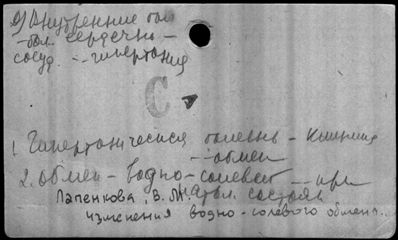 а) Внутренние бол
- бол. сердечно -
сосуд. -- гипертония
С
1 Гипертоническая болезнь - клиника
-- обмен
2. обмен - водно-солевой -- при
Лапенкова, В. М. состоян
изменения водно-солевого обмена..